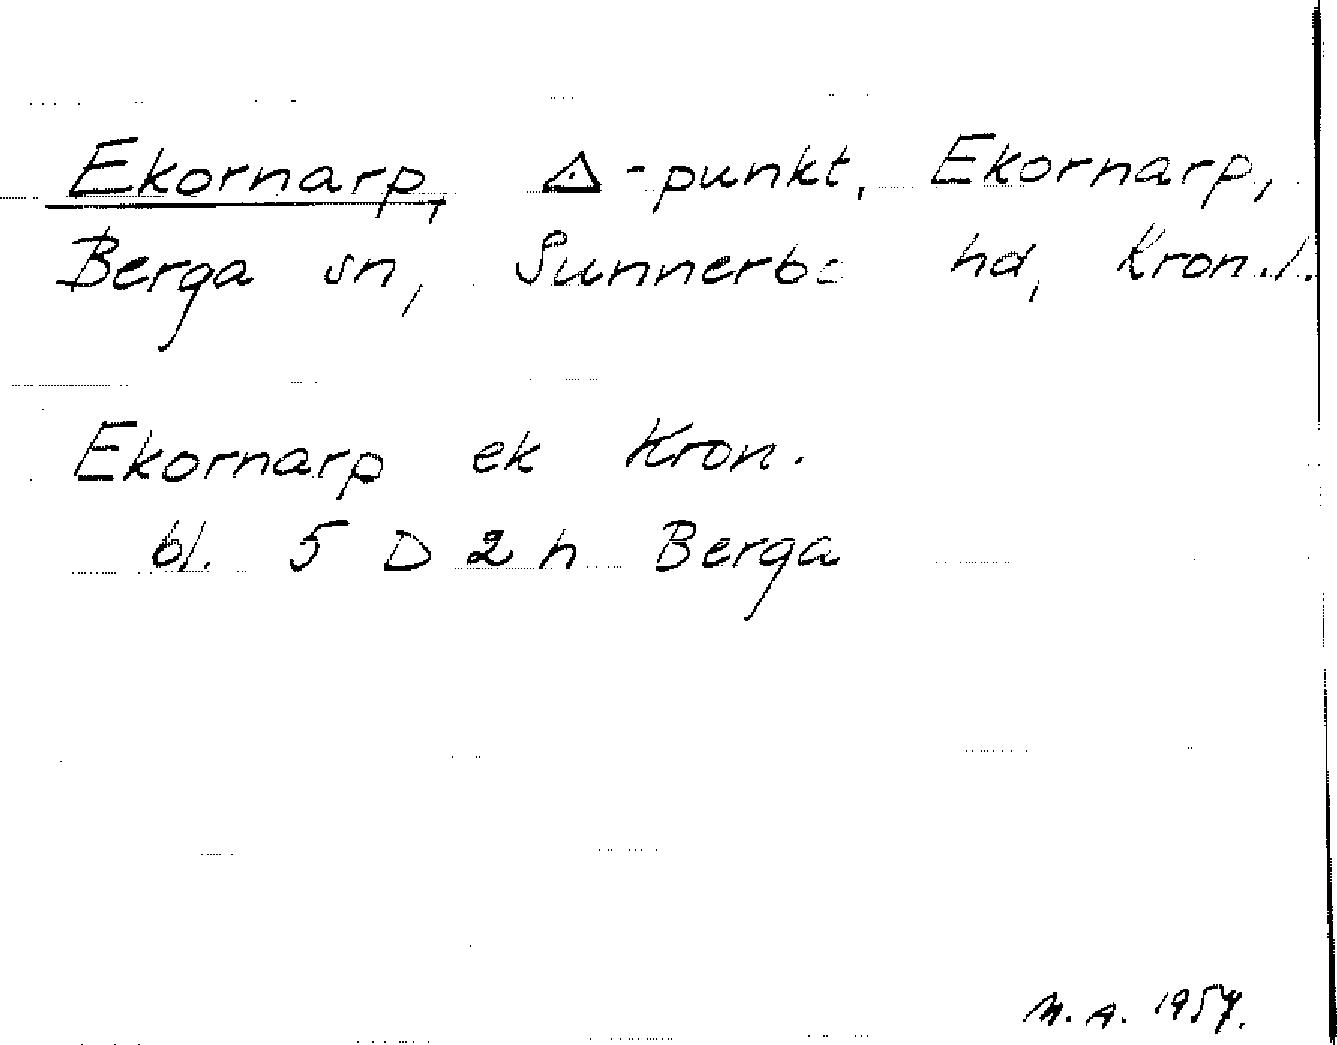 Ekornarp, △-punkt, Ekornarp,
Berga sn, Sunnerbo hd, Kron.l.
Ekornarp ek Kron.
bl. 5 D 2 h Berga
M. A. 1957.